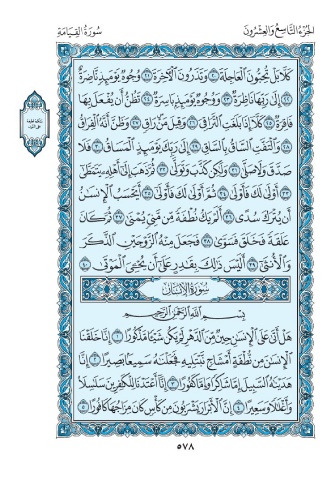 الجزء التاسع والعشرون
سورة القيامة
كَلَّا بَلْ تُحِبُّونَ الْعَاجِلَةَ ٢٠ وَتَذَرُونَ الْآخِرَةَ ٢١ وُجُوهٌ يَوْمَئِذٍ نَّاضِرَةٌ
٢٢ إِلَىٰ رَبِّهَا نَاظِرَةٌ ٢٣ وَوُجُوهٌ يَوْمَئِذٍ بَاسِرَةٌ ٢٤ تَظُنُّ أَن يُفْعَلَ بِهَا
فَاقِرَةٌ ٢٥ كَلَّا إِذَا بَلَغَتِ التَّرَاقِيَ ٢٦ وَقِيلَ مَنْ رَاقٍ ٢٧ وَظَنَّ أَنَّهُ الْفِرَاقُ
٢٨ وَالْتَفَّتِ السَّاقُ بِالسَّاقِ ٢٩ إِلَىٰ رَبِّكَ يَوْمَئِذٍ الْمَسَاقُ ٣٠ فَلَا
صَدَّقَ وَلَا صَلَّىٰ ٣١ وَلَٰكِن كَذَّبَ وَتَوَلَّىٰ ٣٢ ثُمَّ ذَهَبَ إِلَىٰ أَهْلِهِ يَتَمَطَّىٰ
٣٣ أَوْلَىٰ لَكَ فَأَوْلَىٰ ٣٤ ثُمَّ أَوْلَىٰ لَكَ فَأَوْلَىٰ ٣٥ أَيَحْسَبُ الْإِنسَانُ
أَن يُتْرَكَ سُدًى ٣٦ أَلَمْ يَكُ نُطْفَةً مِّن مَّنِيٍّ يُمْنَىٰ ٣٧ ثُمَّ كَانَ
عَلَقَةً فَخَلَقَ فَسَوَّىٰ ٣٨ فَجَعَلَ مِنْهُ الزَّوْجَيْنِ الذَّكَرَ
وَالْأُنثَىٰ ٣٩ أَلَيْسَ ذَٰلِكَ بِقَادِرٍ عَلَىٰ أَن يُحْيِيَ الْمَوْتَىٰ ٤٠
سورة الإنسان
بِسْمِ اللَّهِ الرَّحْمَٰنِ الرَّحِيمِ
هَلْ أَتَىٰ عَلَى الْإِنسَانِ حِينٌ مِّنَ الدَّهْرِ لَمْ يَكُن شَيْئًا مَّذْكُورًا ١ إِنَّا خَلَقْنَا
الْإِنسَانَ مِن نُّطْفَةٍ أَمْشَاجٍ نَّبْتَلِيهِ فَجَعَلْنَاهُ سَمِيعًا بَصِيرًا ٢ إِنَّا
هَدَيْنَاهُ السَّبِيلَ إِمَّا شَاكِرًا وَإِمَّا كَفُورًا ٣ إِنَّا أَعْتَدْنَا لِلْكَافِرِينَ سَلَاسِلَا
وَأَغْلَالًا وَسَعِيرًا ٤ إِنَّ الْأَبْرَارَ يَشْرَبُونَ مِن كَأْسٍ كَانَ مِزَاجُهَا كَافُورًا ٥
٥٧٨